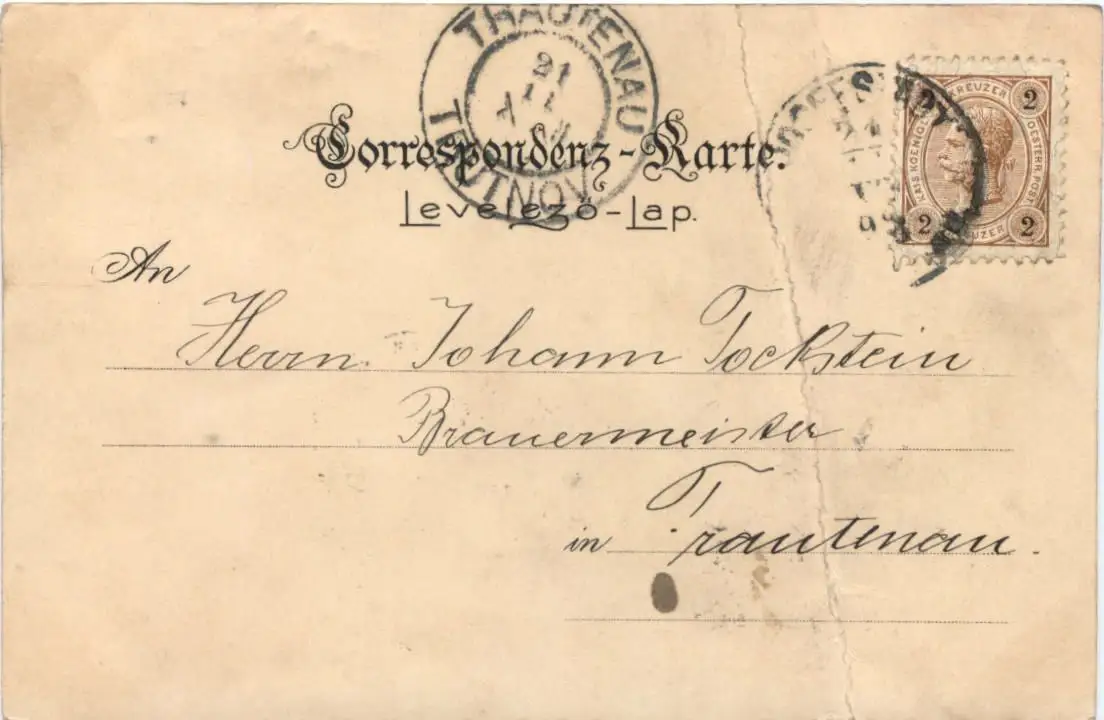 TRAUTENAU
21
TRUTNOV
Correspondenz-Karte.
Levelező-Lap.
2 KREUZER 2
KAIS. KOENIGL. OESTERR. POST
2 KREUZER 2
98
An
Herrn Johann Tockstein
Brauermeister
in Trautenau.